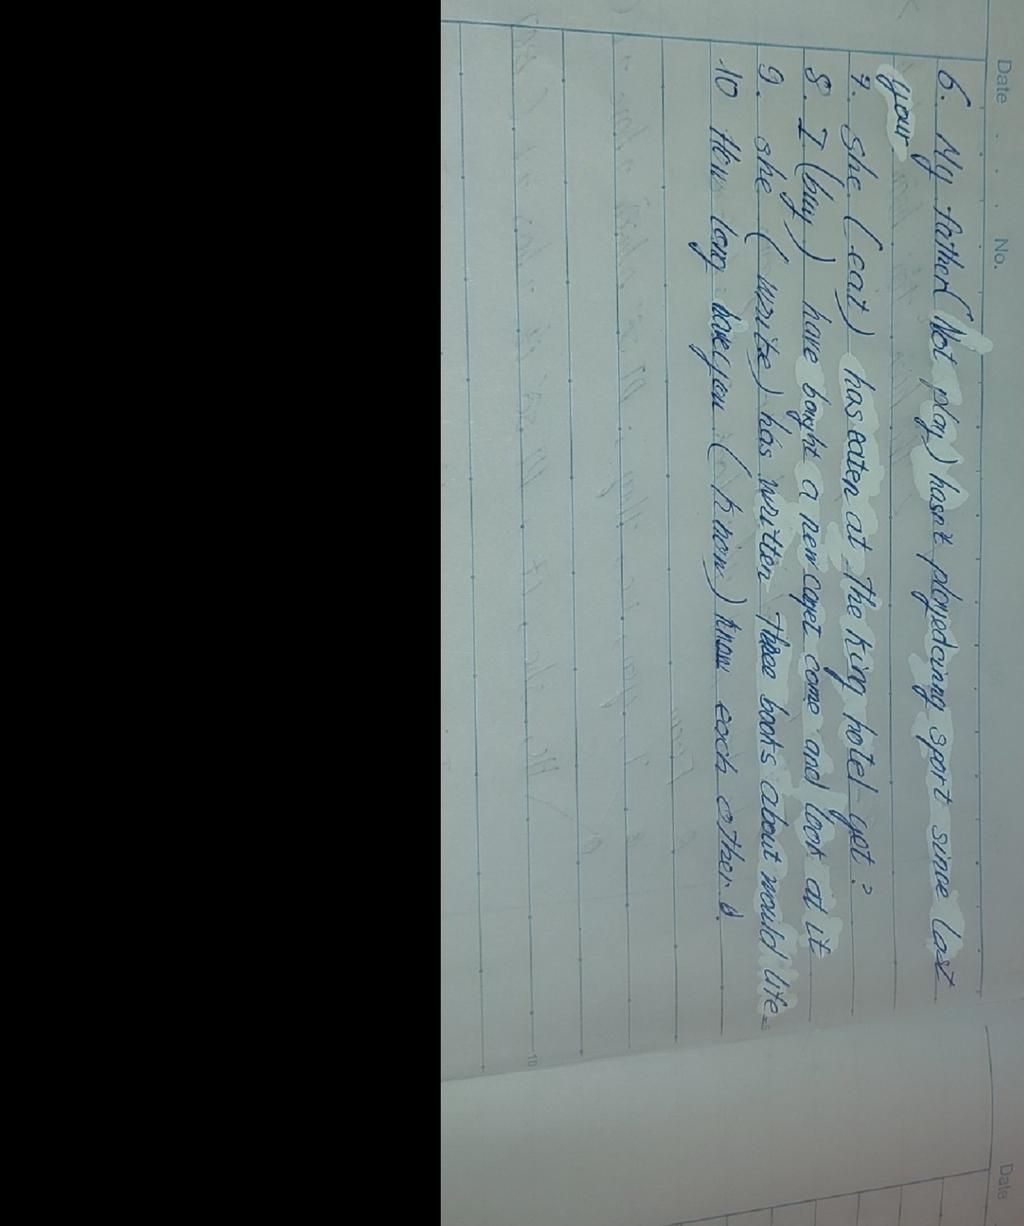 Date No.
6. My father( Not play) hasn't playedainny sport since last
your
7. she (eat) has eaten at the King hotel yet?
8. I (buy) have bought a new carpet come and look at it
9. she (write) has written three books about mould life
10 How long have you (know) know each other
10
Date